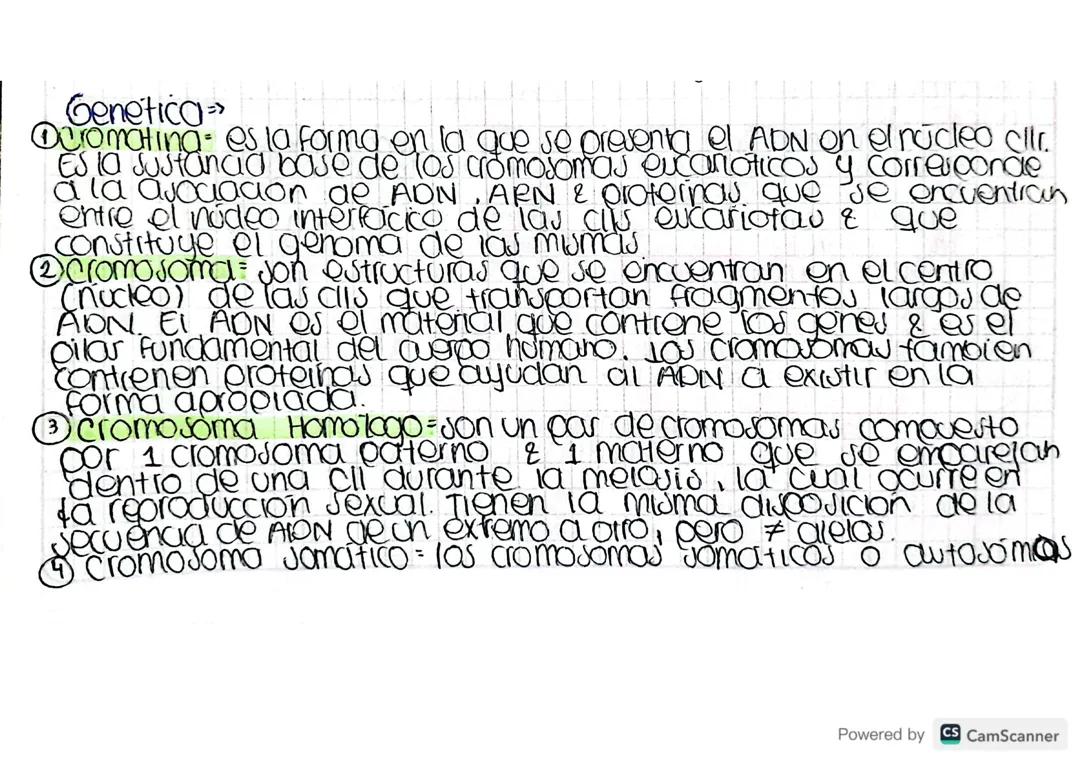 Genética=>
① Cromatina= es la forma en la que se presenta el ADN en el núcleo cllr.
Es la sustancia base de los cromosomas eucarióticos y corresponde
a la asociación de ADN, ARN & proteínas que se encuentran
entre el núcleo interfácico de las clls eucariotas & que
constituye el genoma de las mismas
② Cromosoma= son estructuras que se encuentran en el centro
(núcleo) de las clls que transportan fragmentos largos de
ADN. El ADN es el material que contiene los genes & es el
pilar fundamental del cuerpo humano. Los cromosomas también
contienen proteínas que ayudan al ADN a existir en la
forma apropiada.
③ Cromosoma Homólogo= son un par de cromosomas compuesto
por 1 cromosoma paterno & 1 materno que se emparejan
dentro de una cll durante la meiosis, la cual ocurre en
la reproducción sexual. Tienen la misma disposición de la
secuencia de ADN de un extremo a otro, pero ≠ alelos.
④ Cromosoma somático= los cromosomas somáticos o autosómas
Powered by CS CamScanner